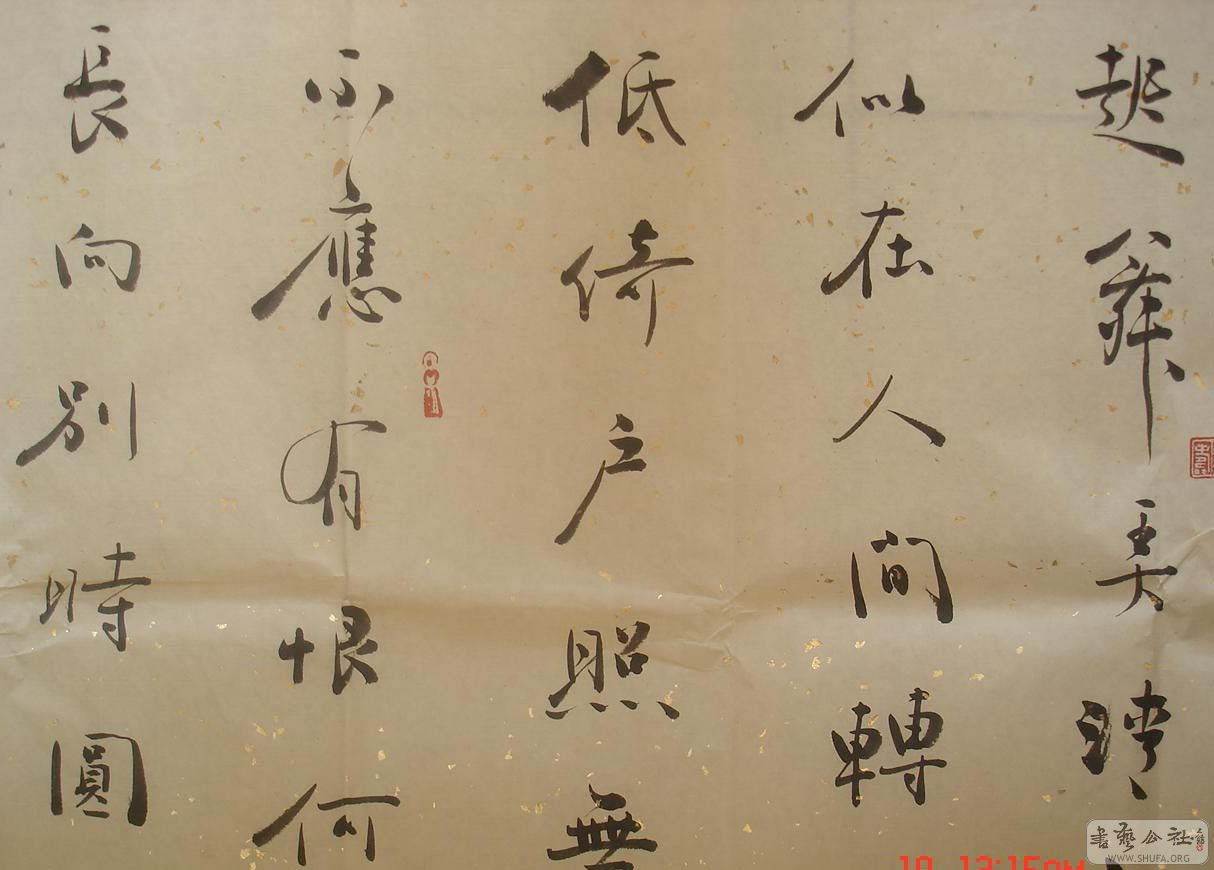 起舞弄清
似在人間轉
低倚戶照無
不應有恨何
長向別時圓
書藝公社
WWW.SHUFA.ORG